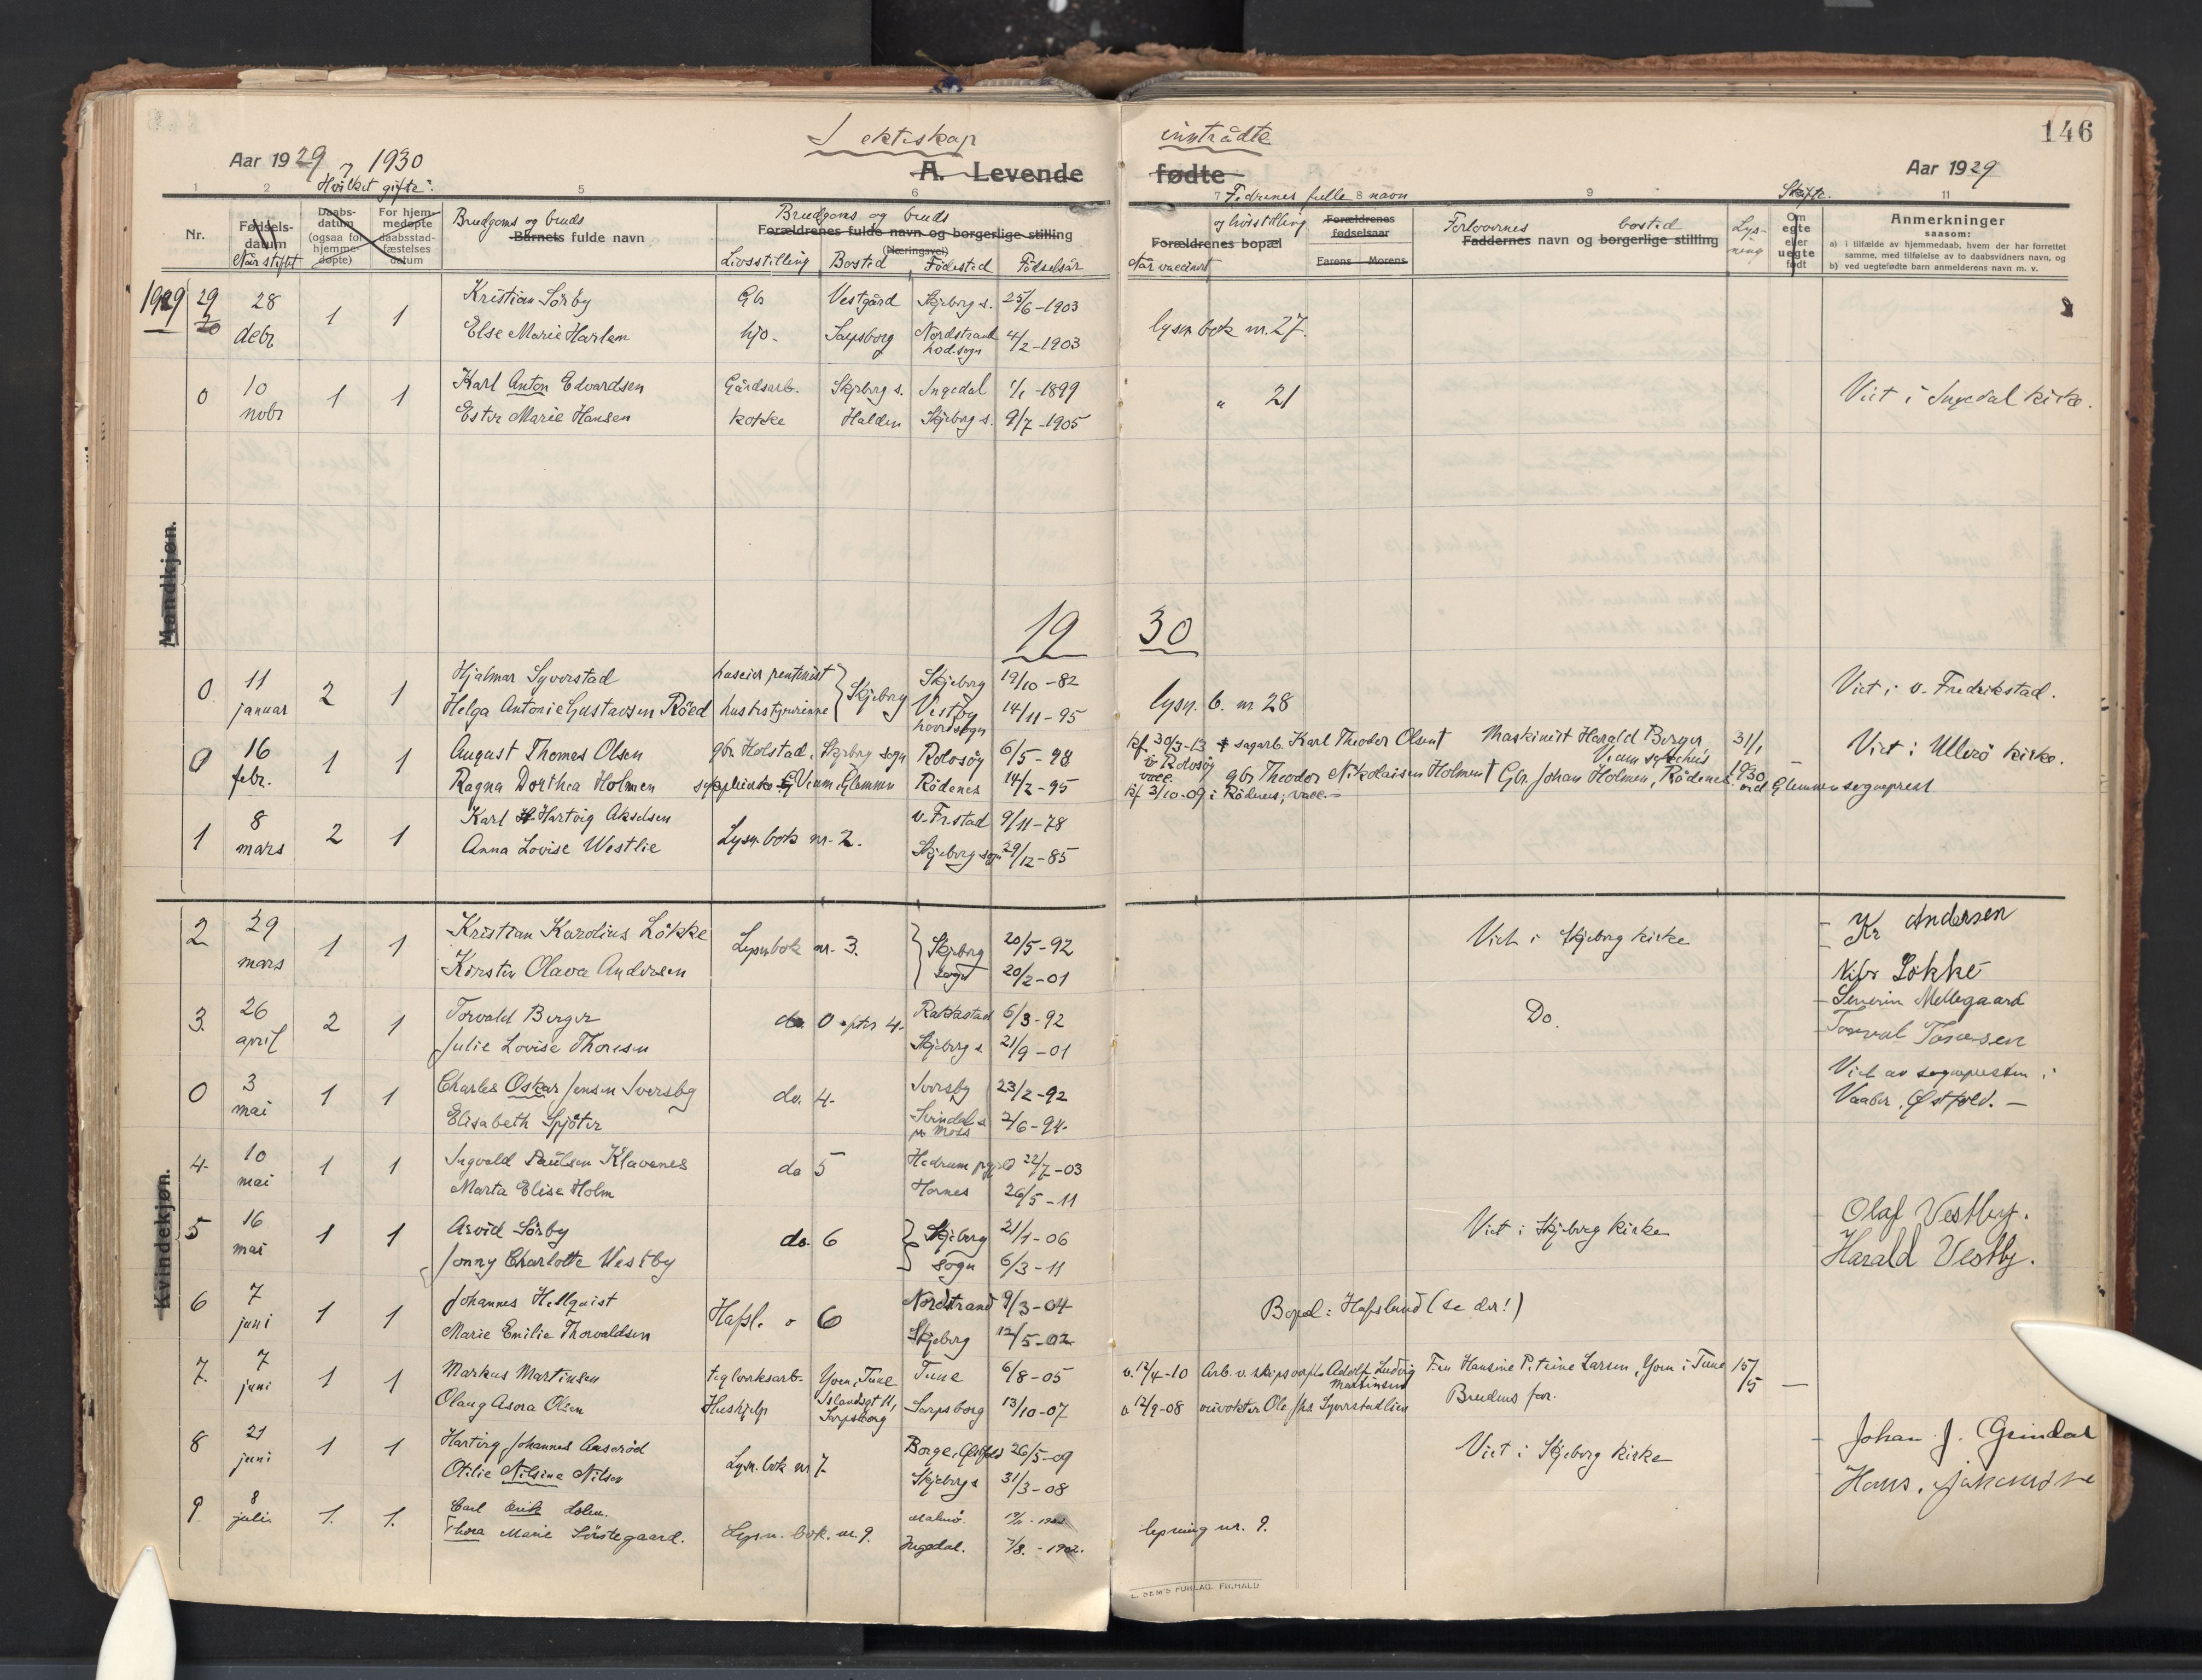 I ektiskap inntrådte
146
Aar 1929, 1930
A. Levende fødte
Aar 1929
Hvilket gifte:
Fedrenes fulle navn
Skifte.
1 2 5 6 7 8 9 11
Nr.
Fødsels-datum
Når stiftet
Daabs-datum (ogsaa for hjemme-døpte)
For hjem-medøpte daabsstad-fæstelses datum
Brudgoms og bruds
Barnets fulde navn
Brudgoms og bruds
Forældrenes fulde navn og borgerlige stilling
(Næringsvei)
Livsstilling Bosted Fødested Fødselsår
og livsstilling
Forældrenes bopæl
Når vaccinert
Forældrenes fødselsaar
Farens Morens
Forlovernes bosted
Faddernes navn og borgerlige stilling
Lys-ning
Om egte eller uegte født
Anmerkninger
saasom:
a) i tilfælde av hjemmedaab, hvem der har forrettet samme, med tilføielse av to daabsvidners navn, og
b) ved uegtefødte barn anmelderens navn m. v.
1929 29 28 debr 1 1 Kristian Sørby Gbr Vestgård Skjeberg s. 25/6-1903
Else Marie Harlem hjo. Sarpsborg Nordstrand hod.sogn 4/2-1903 lysn bok nr. 27.
0 10 nobr 1 1 Karl Anton Edvardsen Gårdsarb. Skjeberg s. Ingedal 1/1-1899 " 21 Viet i Ingedal kirke.
Ester Marie Hansen kokke Halden Skjeberg s. 9/7-1905
Mandkjøn.
1930
0 11 januar 2 1 Hjalmar Syverstad Skjeberg Skjeberg 19/10-82 lysn. b. nr 28 Viet i v. Fredrikstad.
Helga Antonie Gustavsen Röed husbestyrerinne Vestby hovedsogn 14/11-95
0 16 febr. 1 1 August Thomas Olsen gbr Holstad, Skjeberg sogn Rolvsøy 6/5-98 kf. 30/3-13 i Rolvsøy vacc. sagarb. Karl Theodor Olsen † Maskinist Harald Berger, 31/1 1930 Viet i Ullerö kirke.
Ragna Dorthea Holmen Veum, Glemmen Rödenes 14/2-95 kf 3/10-09 i Rödenes; vacc. gbr Theodor Nikolaisen Holmen † Gbr. Johan Holmen, Rödenes ved Glemmen sogneprest
1 8 mars 2 1 Karl Hartvig Akselsen Lysn. bok nr. 2. v. Fr.stad 9/11-78
Anna Lovise Westlie Skjeberg sogn 29/12-85
2 29 mars 1 1 Kristian Karolius Løkke Lysn bok nr. 3. Skjeberg sogn 20/5-92 Viet i Skjeberg kirke Kr Andersen
Kirsten Olava Andersen 20/2-01 Løkke
3. 26 april 2 1 Torvald Berger do 6/3-92 Do. Severin Mellegaard
Julie Lovise Thoresen Skjeberg s 21/9-01
0 3 mai 1 1 Charles Oskar Jensen Iversby do. 4. Iversby 23/2-92 Viet av sognepresten i
Elisabeth Spjøter Svindal s pr Moss 2/6-94 Vaaler, Østfold. —
Kvindekjøn.
4. 10 mai 1 1 Ingvald Paulsen Klavenes do 5 Hedrum 22/7-03
Marta Elise Holm Hornes 26/5-11
5 16 mai 1 1 Arvid Sørby do. 6 Skjeberg sogn 21/1-06 Viet i Skjeberg kirke Olaf Vestby.
Jenny Charlotte Westby 6/3-11 Harald Vestby.
6 7 juni 1 1 Johannes Hellquist Hafsl. 6 Nordstrand 9/3-04 Bopel: Hafslund (se der!)
Marie Emilie Thorvaldsen Skjeberg 12/5-02
7. 7 juni 1 1 Markus Martinsen teglverksarb. Yven, Tune Tune 6/8-05 v. 12/4-10 Arb. Adolf Ludvig Martinsen Fru Hansine Petrine Larsen, Yven i Tune 15/5 —
Olaug Asora Olsen Hushjelp Islandsgt 11, Sarpsborg Sarpsborg 13/10-07 v 12/9-08 Ole Brudens far.
8 21 juni 1 1 Hartvig Johannes Lysn. bok nr 7. Borge, Østfold 26/5-09 Viet i Skjeberg kirke Johan J. Grindal
Otilie Nilsine Nilsen Skjeberg s 31/3-08 Hans
9. 8 juli 1. 1. Carl Erik Lysn. bok. nr. 9. Malmö. lysning nr. 9.
Thora Marie Sörstegaard. Ingedal. 7/8.-1902.
E. SEM'S FORLAG. FR.HALD